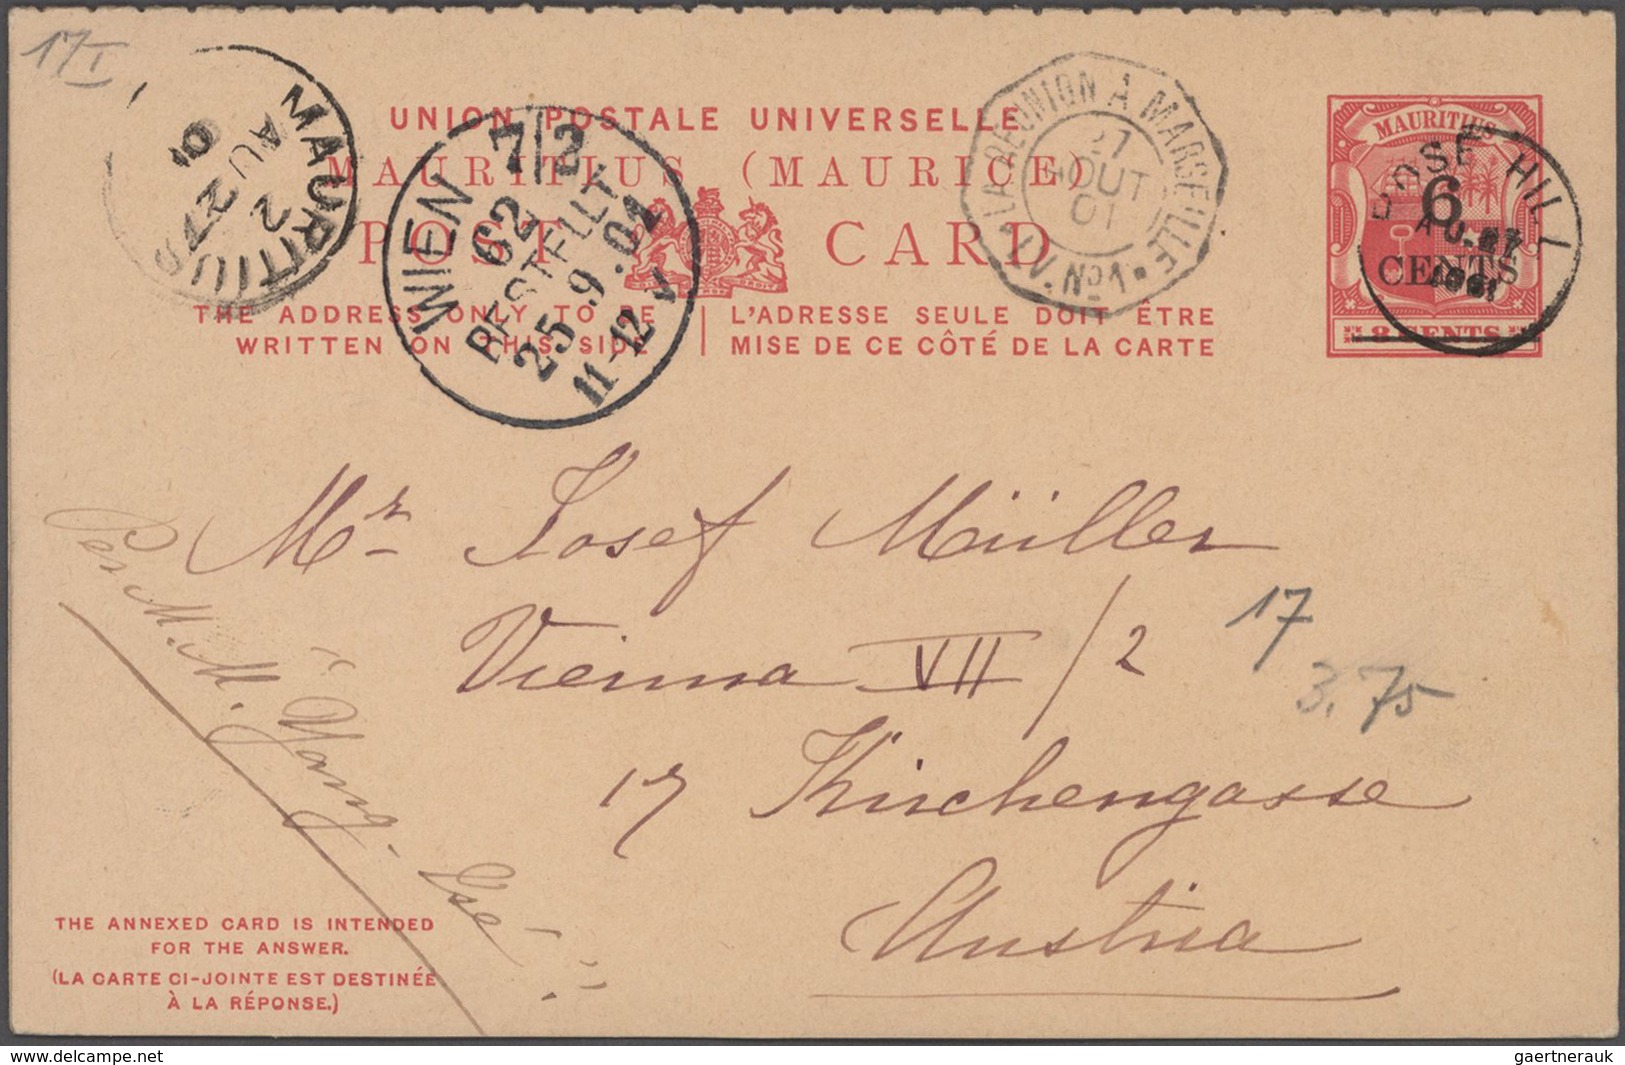 17I
UNION POSTALE UNIVERSELLE
MAURITIUS (MAURICE)
POST CARD
THE ADDRESS ONLY TO BE
WRITTEN ON THIS SIDE
L'ADRESSE SEULE DOIT ÊTRE
MISE DE CE CÔTÉ DE LA CARTE
MAURITIUS
2
AU 27
01
WIEN 7/2
62
BESTELLT
25.9.01
11-12 V
LA REUNION A MARSEILLE
27
AOUT
01
L.V. No 1
MAURITIUS
6
CENTS
8 CENTS
ROSE HILL
AU 27
1901
Mr Josef Müller
Vienna VII/2
17 Kirchengasse
Austria
17
3.75
Per M.M. "Yang-Tse"
THE ANNEXED CARD IS INTENDED
FOR THE ANSWER.
(LA CARTE CI-JOINTE EST DESTINÉE
À LA RÉPONSE.)
www.delcampe.net
gaertnerauk